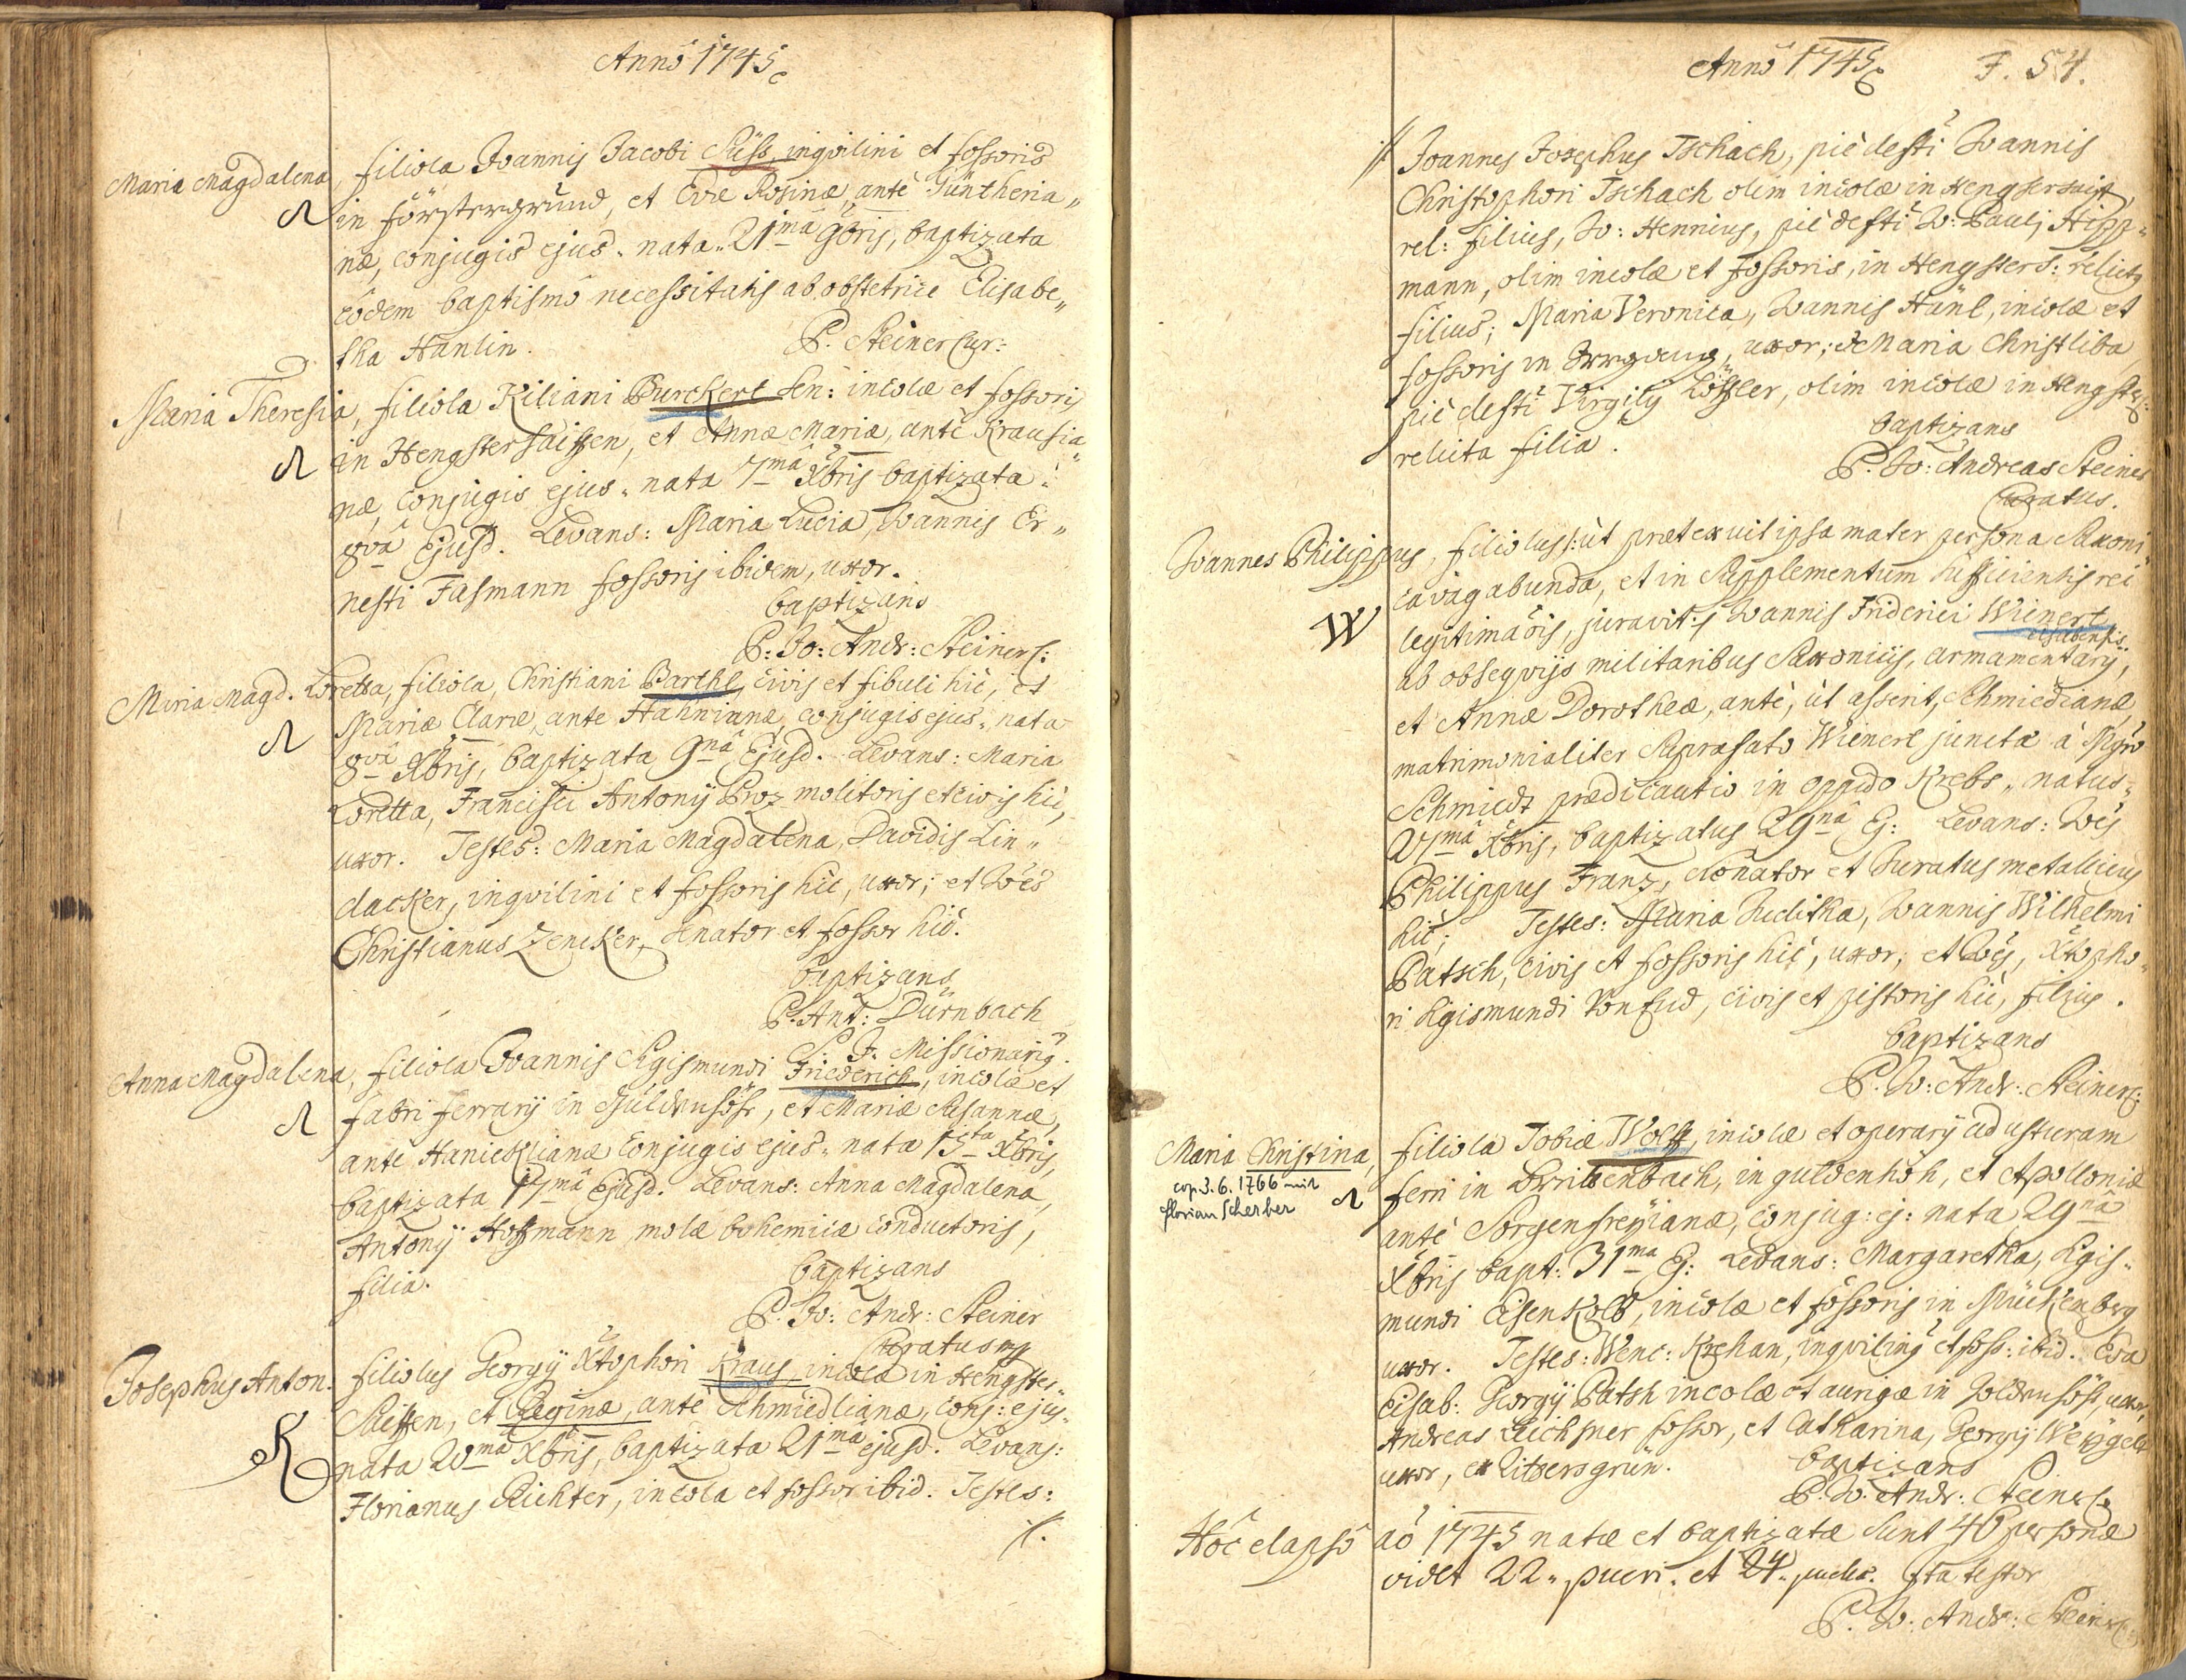 Anno 1745
Maria Magdalena, filiola Joannis Jacobi Süss, inqvilini et fossoris
in Förstergrund, et Evæ Rosinæ, ante Güntheria„
næ, conjugis ejus. nata 21mâ 9bris, baptizata
eodem baptismo necessitatis ab obstetrice Elisabe„
tha Hanlin. P. Steiner Cur:
Maria Theresia, filiola Kiliani Burckert Sen: incolæ et fossoris
in Hengstersaiffen, et Annæ Mariæ, ante Krausia„
næ, conjugis ejus. nata 7mâ Xbris baptizata
8vâ Ejusd. Levans: Maria Lucia, Joannis Er„
nesti Fasmann fossoris ibidem, uxor.
baptizans
P: Jo: Andr: Steiner C:
Maria Magd. Loretta, filiola, Christiani Barthl, civis et fibuli hic, et
Mariæ Claræ, ante Hahnianæ, conjugis ejus. nata
8vâ Xbris, baptizata 9nâ Ejusd. Levans: Maria
Loretta, Francisci Antonij Proz molitoris et civis hic,
uxor. Testes: Maria Magdalena, Davidis Lin„
dacker, inqvilini et fossoris hic, uxor; et Joës
Christianus Zencker, Senator et fossor hic.
baptizans
P. Ant: Dürnbach
S. J. Missionarig.
Anna Magdalena, filiola Joannis Sigismundi Friederich, incolæ et
fabri ferrarij in Guldenhöh, et Mariæ Susannæ,
ante Hanicklianæ conjugis ejus. nata 15ta Xbris,
baptizata 17mâ Ejusd. Levans: Anna Magdalena,
Antonij Hoffmann molæ bohemicæ conductoris,
filia.
baptizans
P. Jo: Andr: Steiner
Curatus mp
Josephus Anton. filiolus Georgij Xtophori Kraus incolæ in Hengster„
Seiffen, et Reginæ, ante Schmiedlianæ, conj: ejus.
K nata 20mâ Xbris, baptizata 21mâ ejusd. Levans:
Florianus Richter, incola et fossor ibid. Testes:
./.
Anno 1745 F. 54.
Joannes Josephus Tschach, piè defti Joannis
Christophori Tschach olim incolæ in Hengstersaiff,
rel: filius, Jo: Hennius, piè defti Jo: Pauli Hipp„
mann, olim incolæ et fossoris, in Hengsters: relict
filius; Maria Veronica, Joannis Hänl, incolæ et
fossoris in Irrgang, uxor; et Maria Christliba
piè defti Virgilij Löffler, olim incolæ in Hengsters:
relicta filia.
baptizans
P. Jo: Andreas Steiner
Curatus.
Joannes Philippus, filiolus /: ut prætexuit ipsa mater persona Saxoni„
ca vagabunda, et in Supplementum sufficientis rei
W legitimaõis, juravit :/ Joannis Friderici Wienert
ab obseqvijs militaribus Saxonicis, armamentarij,
et Annæ Dorotheæ, ante, ut asserit, Schmiedianæ
matrimonialiter Suprafato Wienert juncta à Mgro
Schmiedt prædicantio in oppido Krebs. natus
27mâ Xbris, baptizatus 29nâ Ej: Levans: Joës
Philippus Franz, Senator et Juratus metallicus
hic; Testes: Maria Juditha, Joannis Wilhelmi
Patsch, civis et fossoris hic, uxor; et Joës, Xtopho„
ri Sigismundi Konhud, civis et pistoris hic, filius.
baptizans
P. Jo: Andr: Steiner C:
Maria Christina, filiola Tobiæ Wolff, incolæ et operarij ad usturam
cop. 3. 6. 1766 mit
florian Scherber
ferri in Breittenbach, in guldenhöh, et Apolloniæ
ante Sorgenfreyianæ, conjug: ej: nata 29nâ
Xbris bapt: 31ma Ej: Levans: Margaretha, Sigis„
mundi Eisenkolb, incolæ et fossoris in Mückenberg
uxor. Testes: Wenc: Krehan, inqvilinq et foss: ibid. Eva
Elisab: Georgij Patsh incolæ et aurigæ in Goldenhöh, uxor,
Andreas Leichsner fossor, et Catharina, Georgij Weigelt
uxor, ex Zittersgrün. baptizans
P. Jo: Andr: Steiner C.
Hoc elapso aõ 1745 natæ et baptizatæ sunt 46 personæ
videt 22. pueri. et 24. puelæ. Ita testor
P. Jo: Andr: Steiner C: